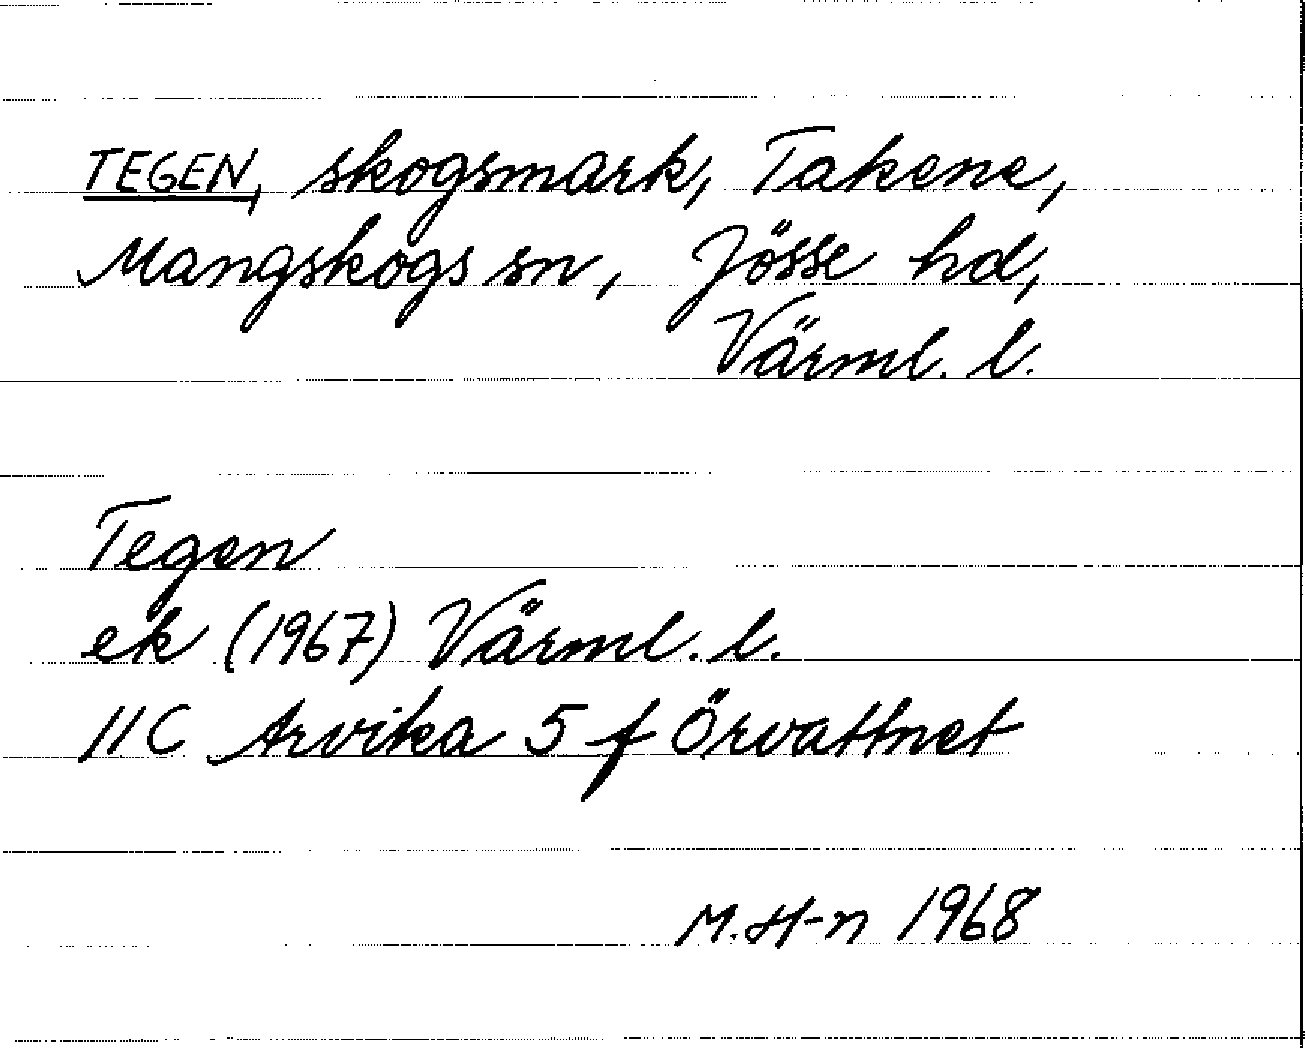 TEGEN, skogsmark, Takene,
Mangskogs sn, Jösse hd,
Värml. l.
Tegen
ek (1967) Värml. l.
11C Arvika 5 f Örvattnet
M.H-n 1968